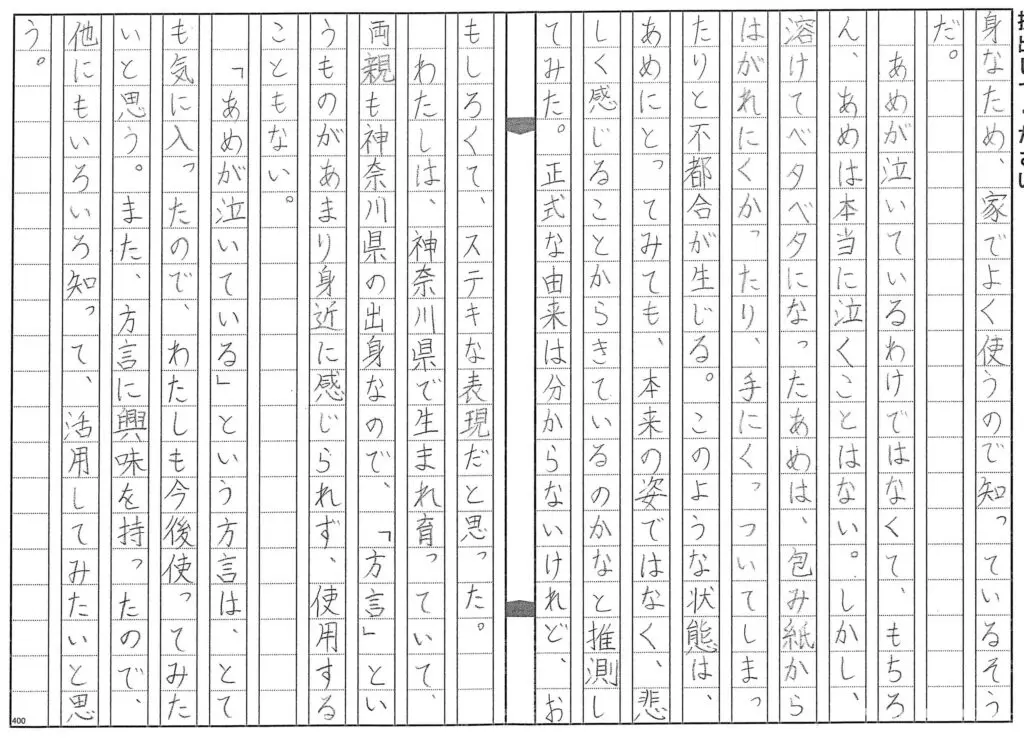 身なため、家でよく使うので知っているそう
だ。
あめが泣いているわけではなくて、もちろ
ん、あめは本当に泣くことはない。しかし、
溶けてベタベタになったあめは、包み紙から
はがれにくかったり、手にくっついてしまっ
たりと不都合が生じる。このような状態は、
あめにとってみても、本来の姿ではなく、悲
しく感じることからきているのかなと推測し
てみた。正式な由来は分からないけれど、お
もしろくて、ステキな表現だと思った。
わたしは、神奈川県で生まれ育っていて、
両親も神奈川県の出身なので、「方言」とい
うものがあまり身近に感じられず、使用する
こともない。
「あめが泣いている」という方言は、とて
も気に入ったので、わたしも今後使ってみた
いと思う。また、方言に興味を持ったので、
他にもいろいろ知って、活用してみたいと思
う。
400